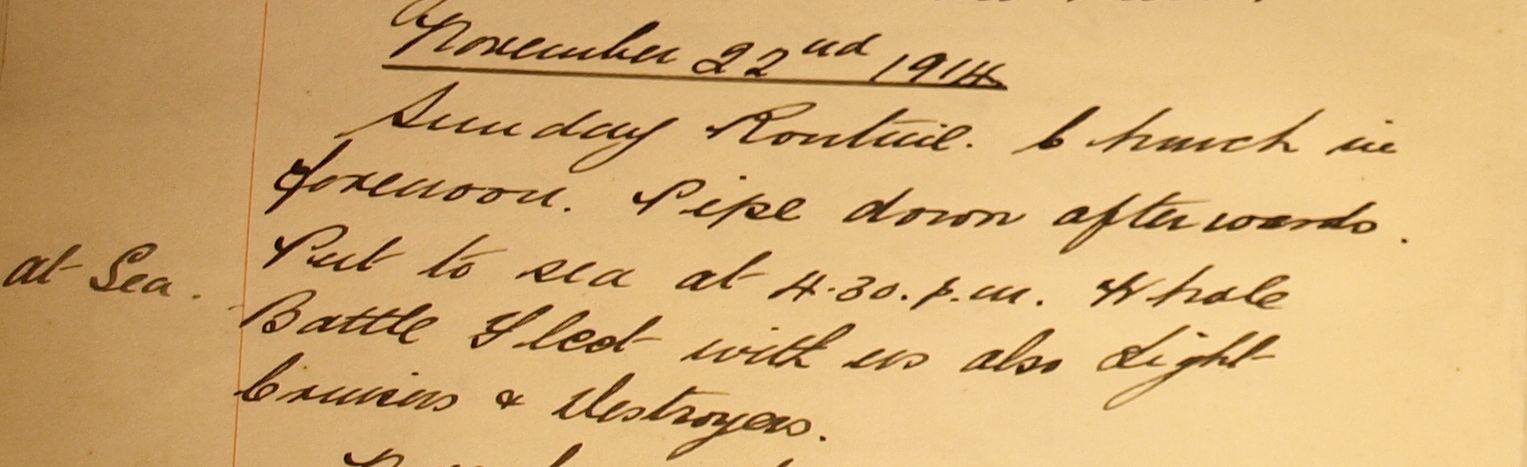 November 22nd 1914
Sunday Routine. Church in
forenoon. Pipe down afterwards.
Put to sea at 4.30. p.m. Whole
at Sea.
Battle Fleet with us also Light
Cruisers & Destroyers.